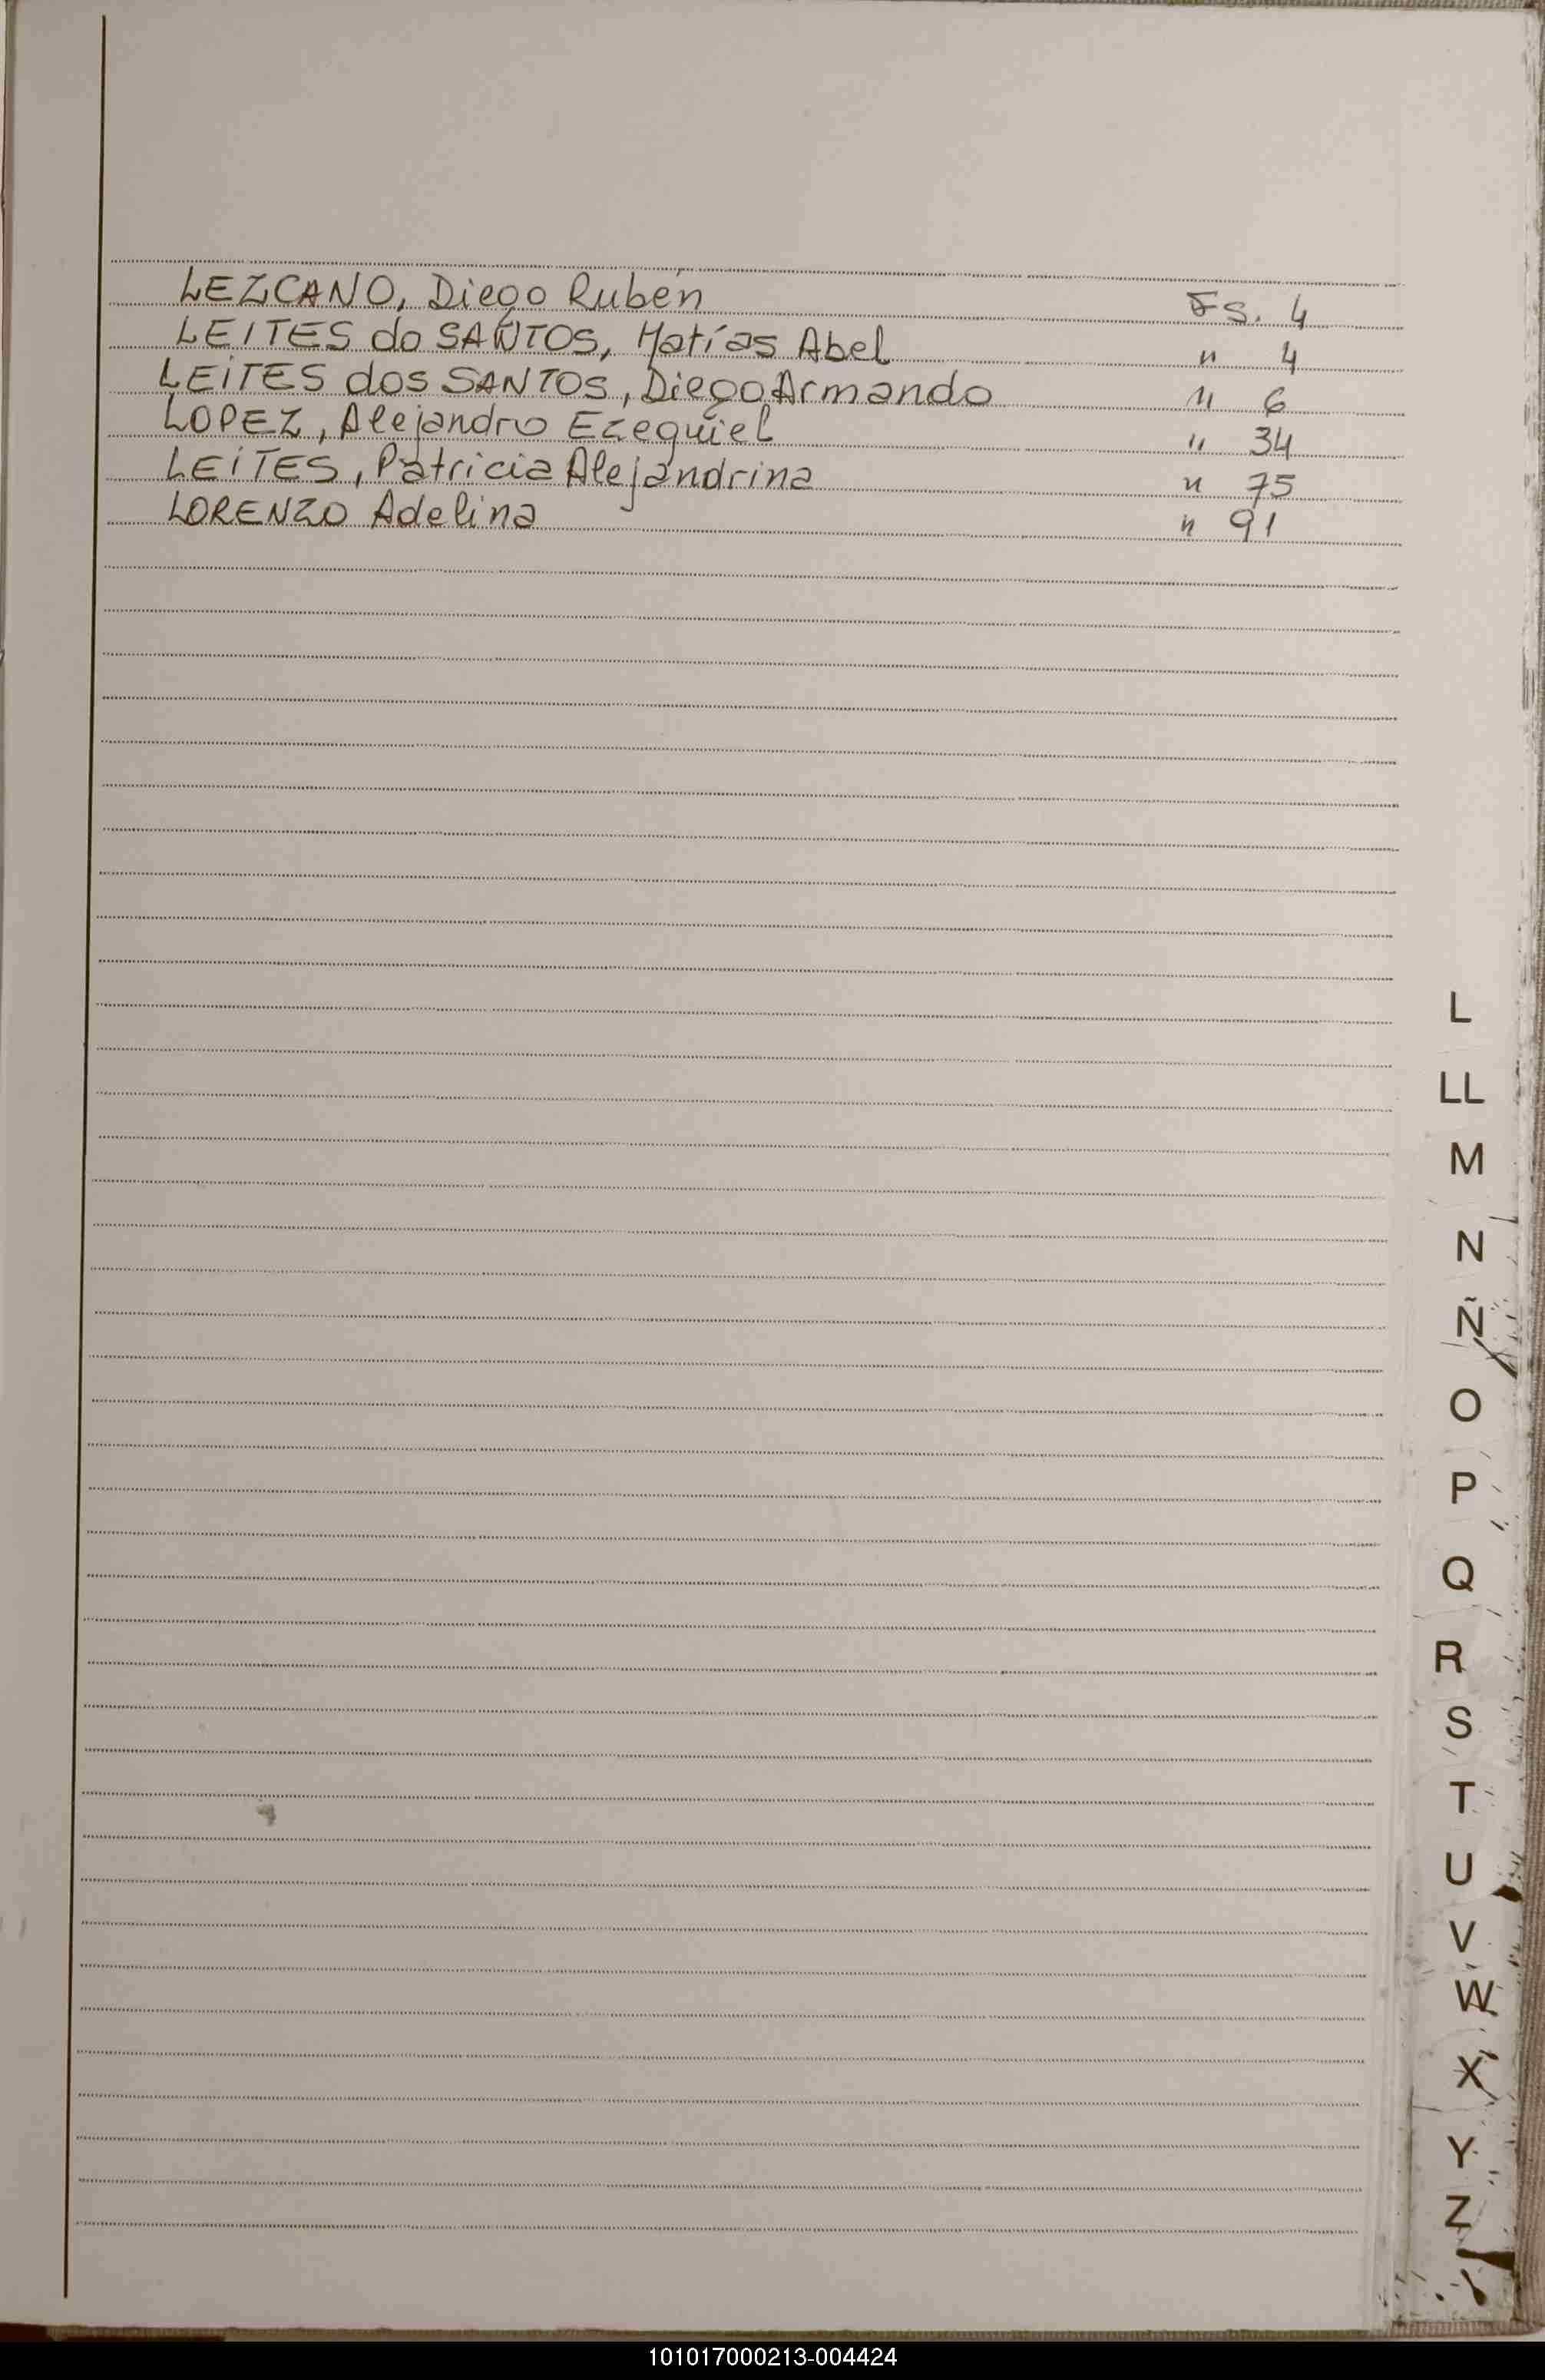 LEZCANO, Diego Rubén Fs. 4
LEITES do SANTOS, Matías Abel " 4
LEITES dos SANTOS, Diego Armando " 6
LOPEZ, Alejandro Ezequiel " 34
LEITES, Patricia Alejandrina " 75
LORENZO Adelina " 91
L
LL
M
N
Ñ
O
P
Q
R
S
T
U
V
W
X
Y
Z
101017000213-004424